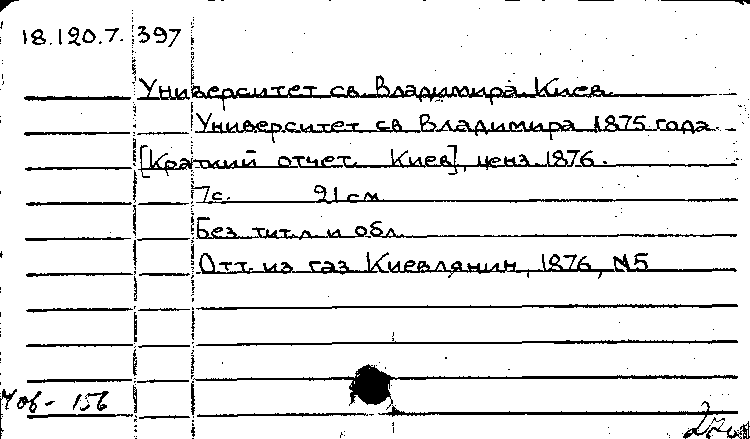 18.120.7. 397
Университет св. Владимира. Киев.
Университет св Владимира 1875 года
[Краткий отчет. Киев], ценз. 1876.
7с. 21см
Без тит.л и обл.
Отт. из газ Киевлянин, 1876, №5
156